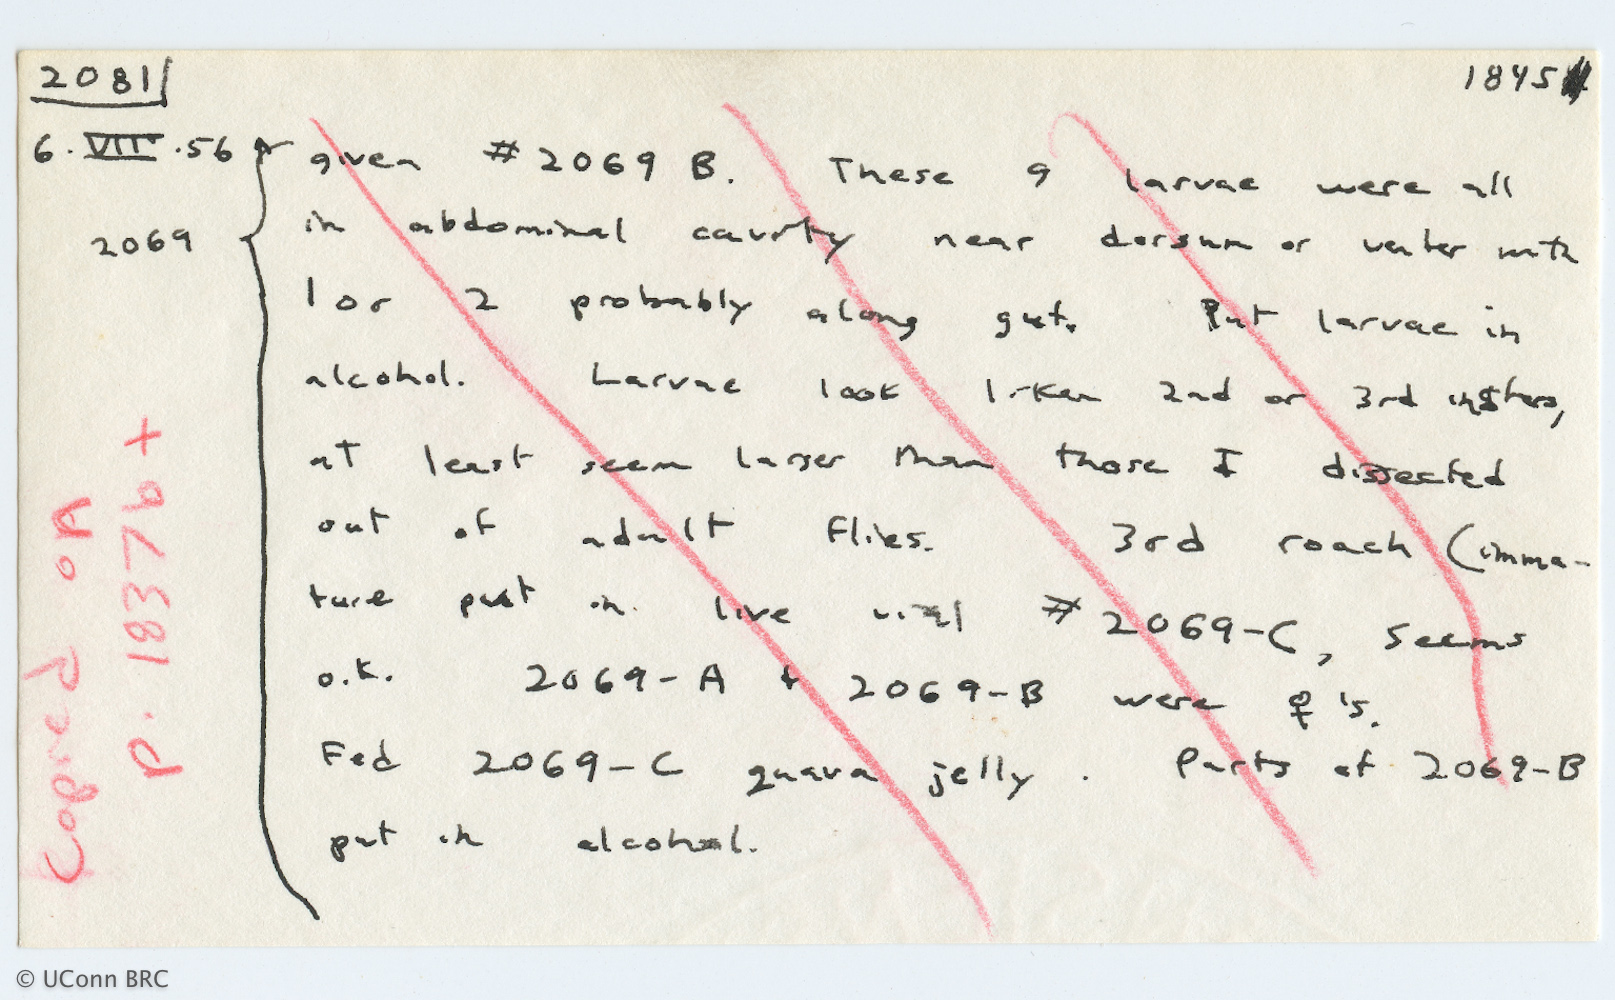 2081
1845
6.VIII.56
2069
given #2069 B. These 9 larvae were all
in abdominal cavity near dorsum or venter with
1 or 2 probably along gut. Put larvae in
alcohol. Larvae look liken 2nd or 3rd instars,
at least seem larger than those I dissected
out of adult flies. 3rd roach (imma-
ture put in live vial #2069-C, seems
o.k. 2069-A + 2069-B were ♀'s.
Fed 2069-C guava jelly. Parts of 2069-B
put in alcohol.
Copied on
p. 1837b +
© UConn BRC